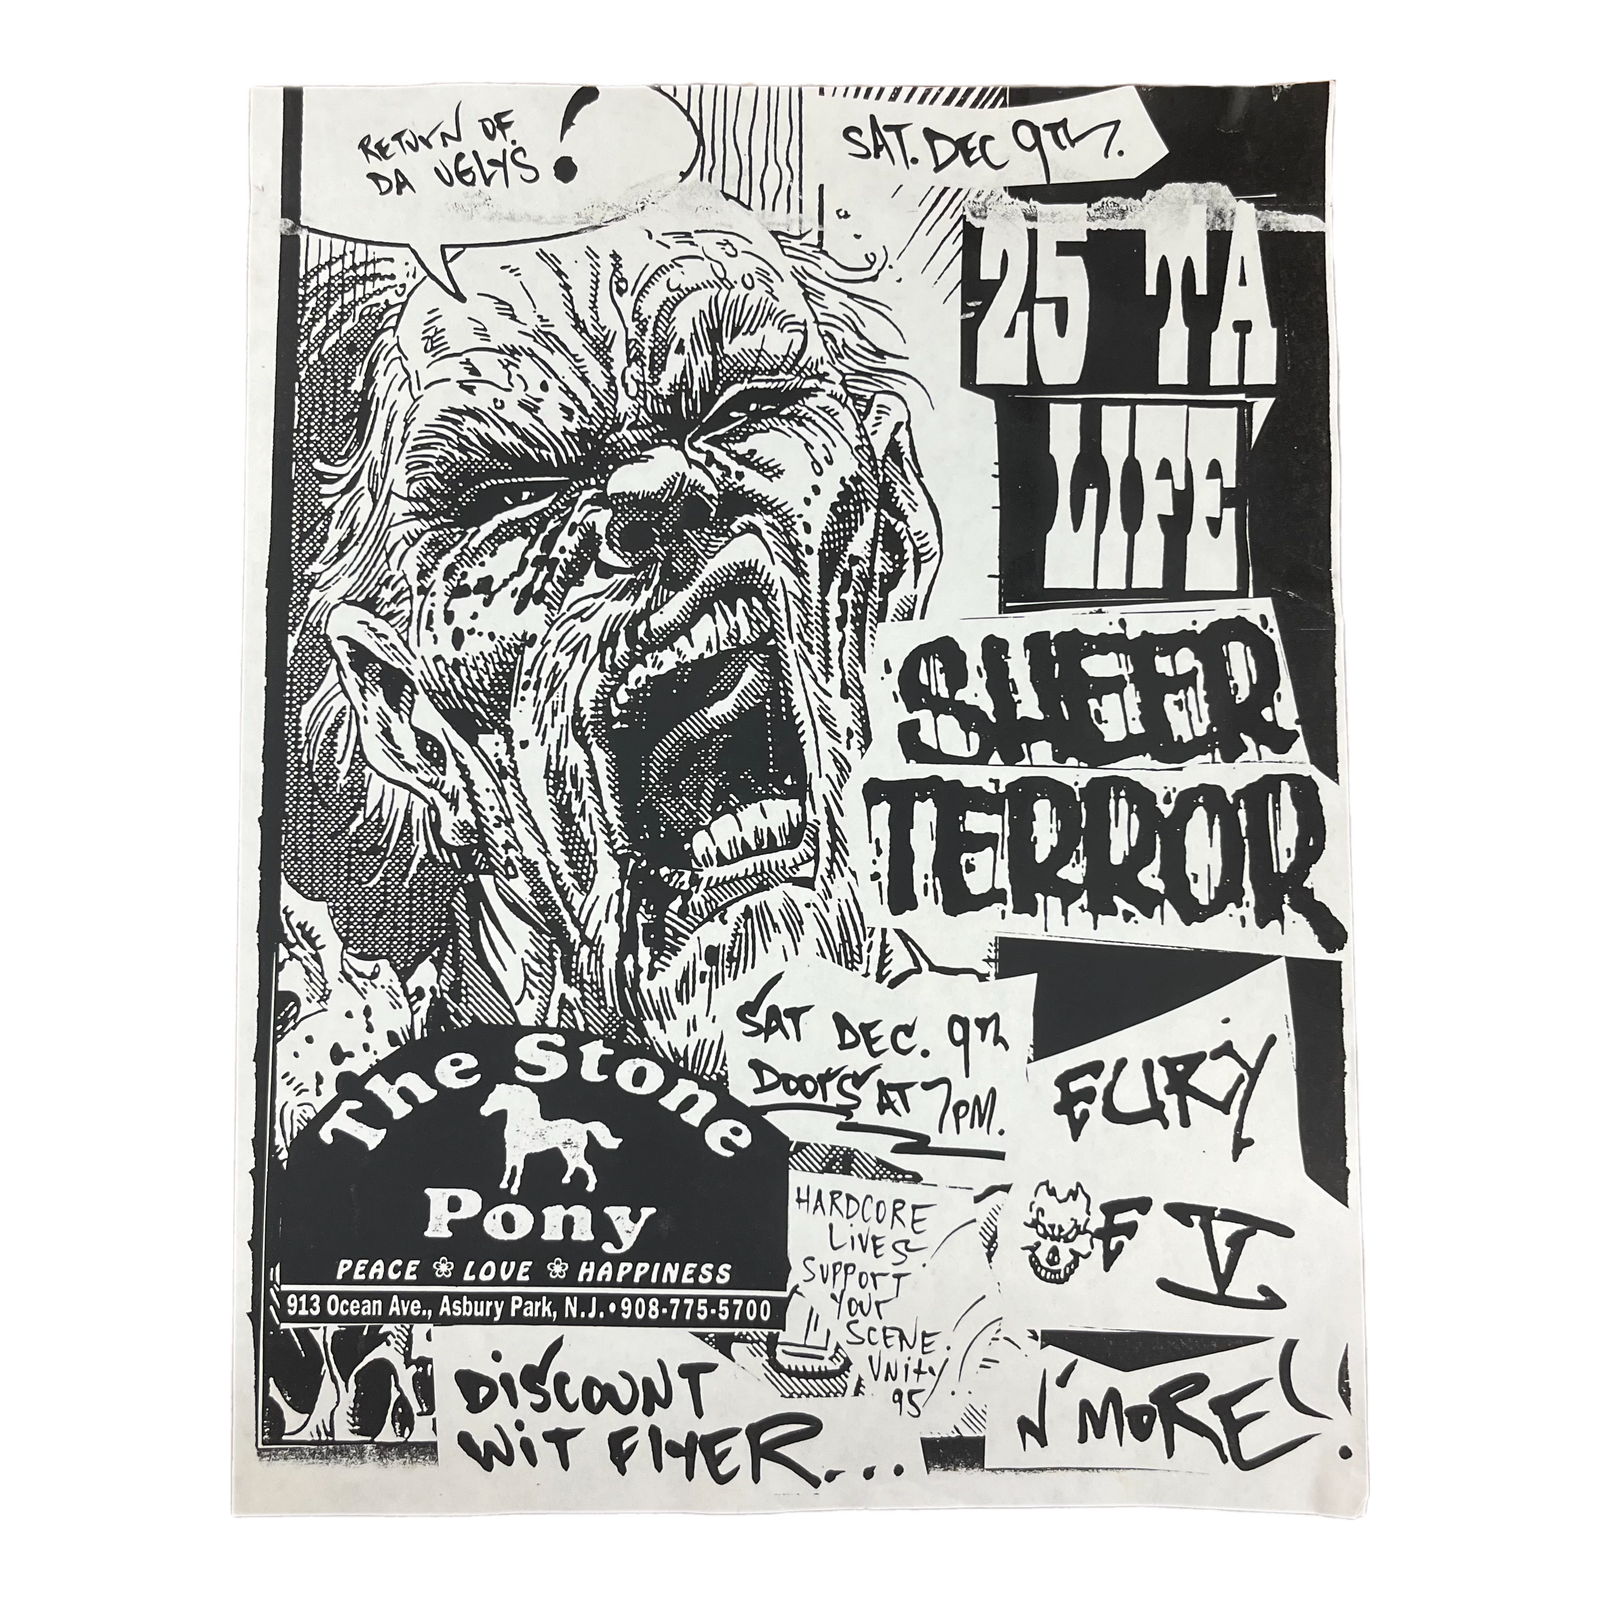 RETURN OF
DA UGLYS!
SAT. DEC 9TH.
25 TA
LIFE
SHEER
TERROR
SAT DEC. 9TH
DOORS AT 7PM.
FURY
OF V
The Stone
Pony
PEACE LOVE HAPPINESS
913 Ocean Ave., Asbury Park, N.J. • 908-775-5700
HARDCORE
LIVES
SUPPORT
YOUR
SCENE.
UNITY
95
DISCOUNT
WIT FLYER...
N' MORE!